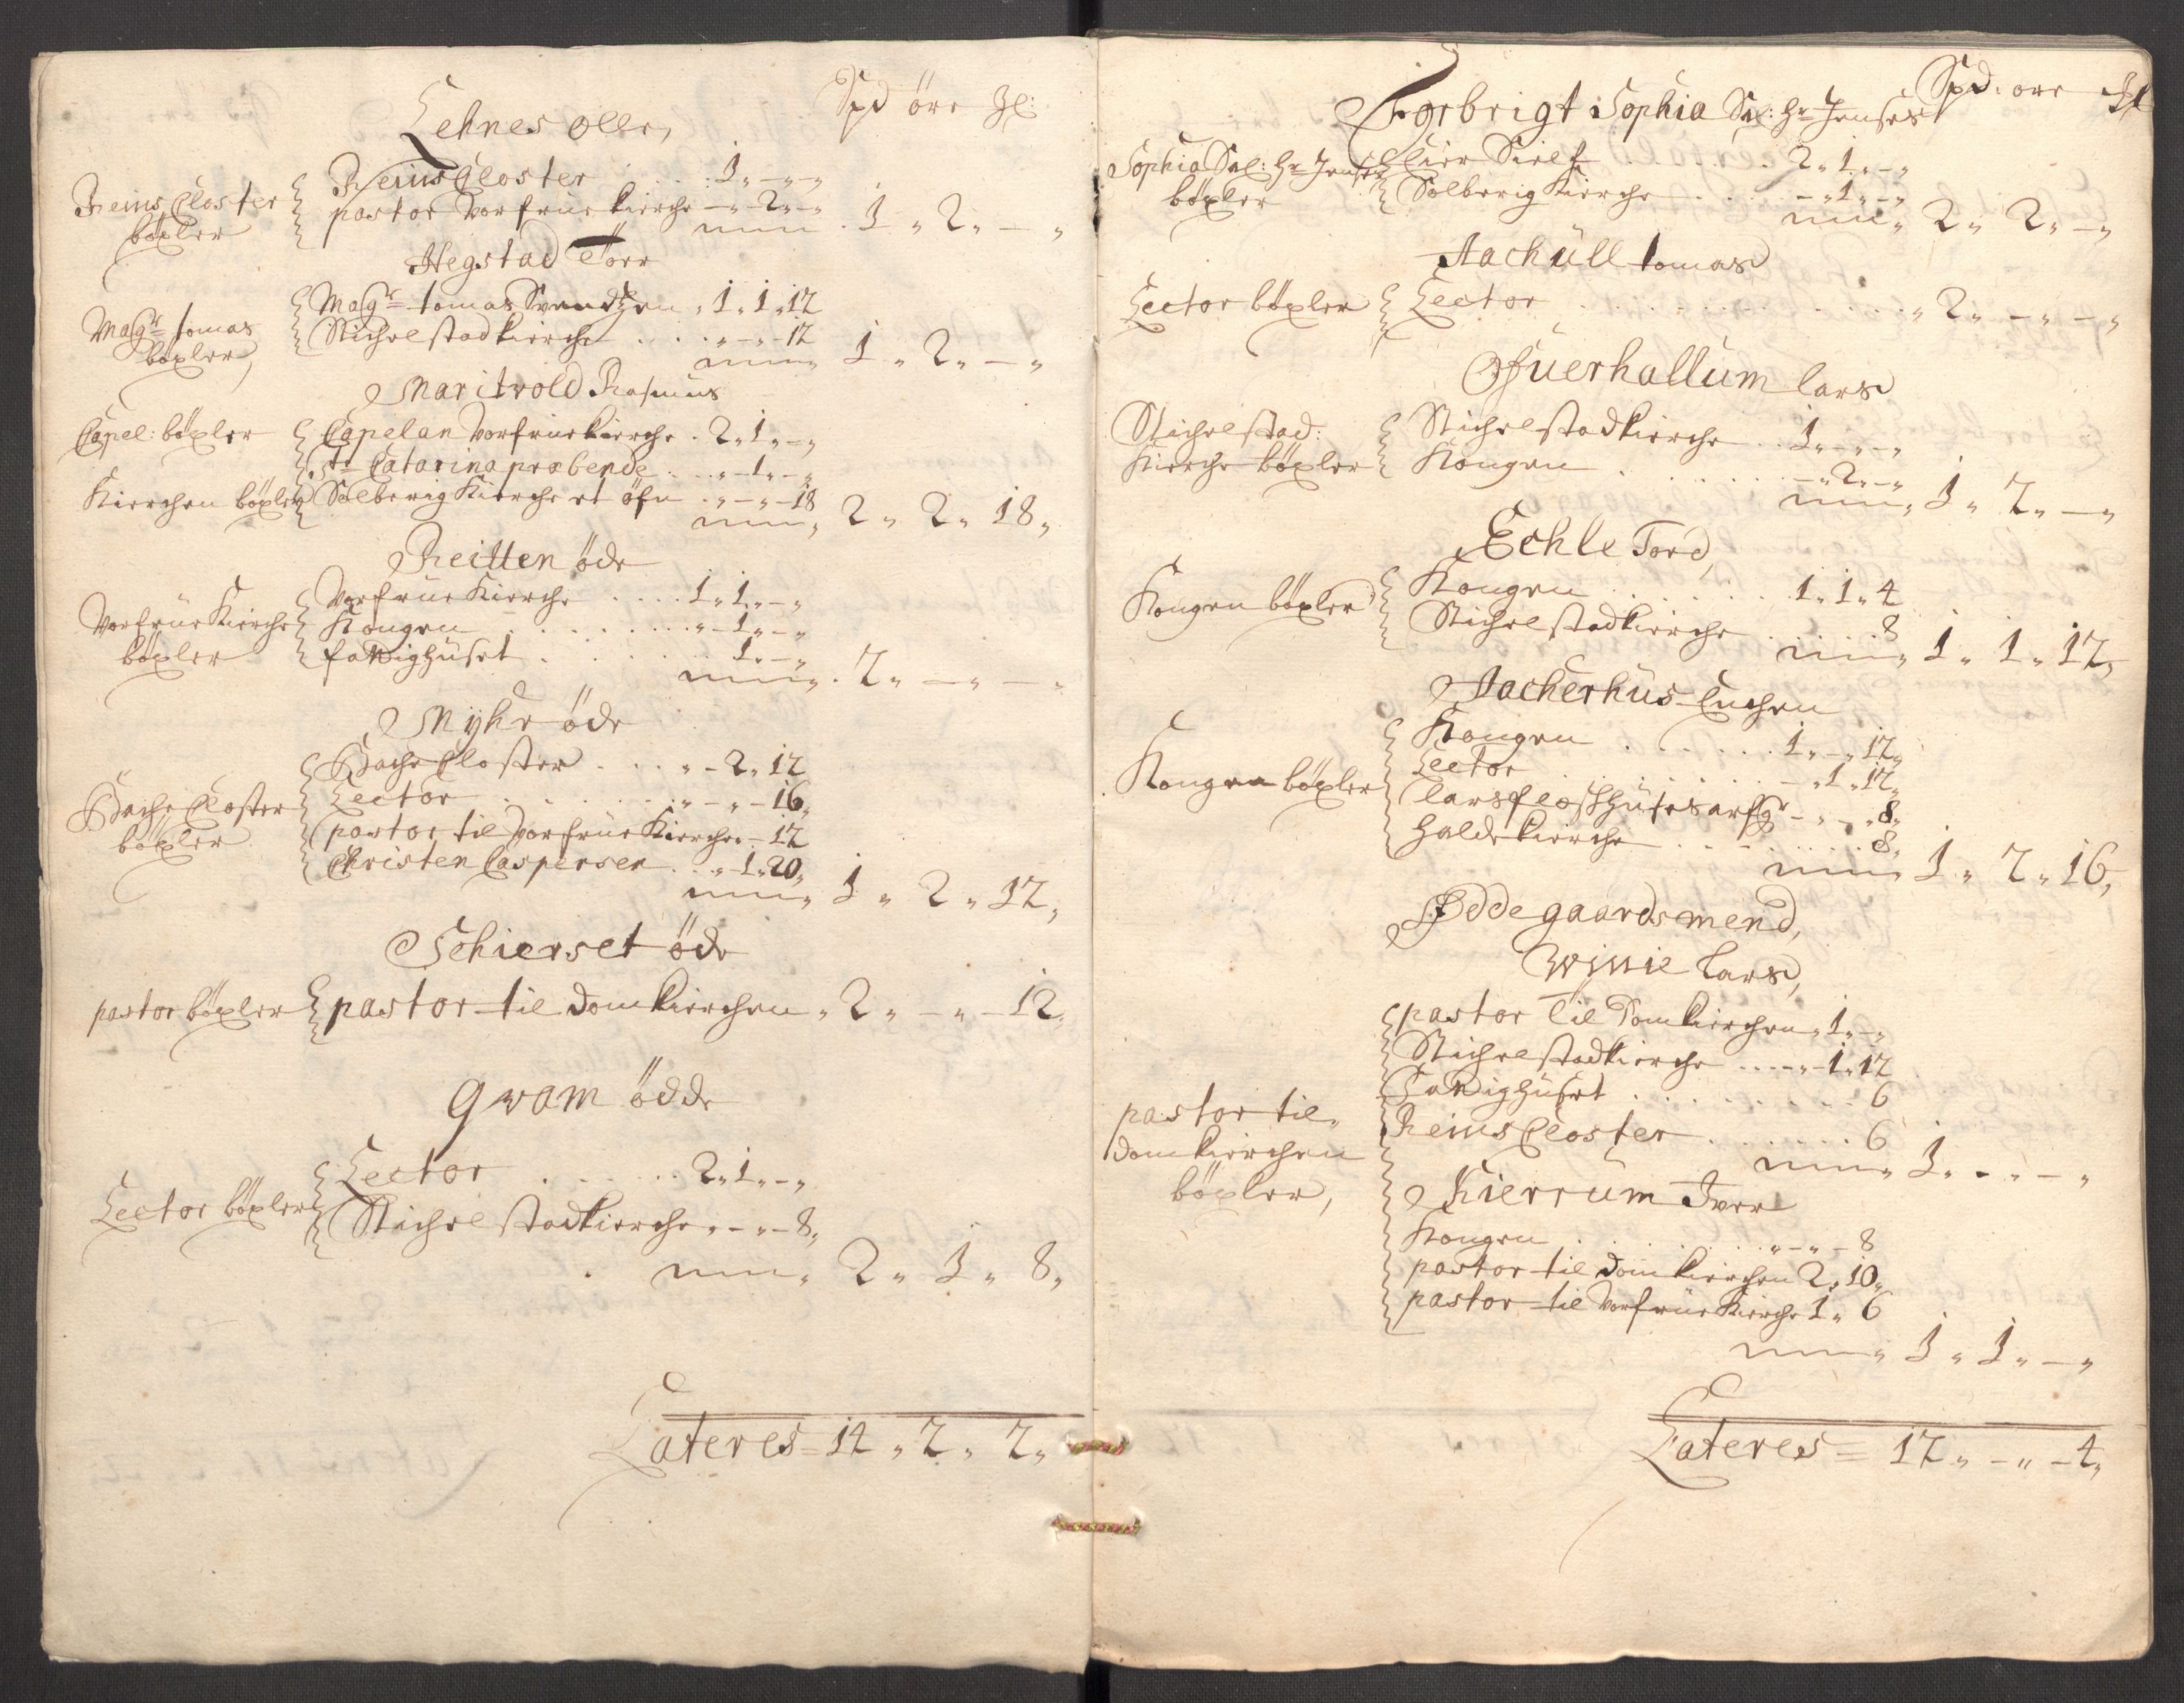 Spd öre Zl:
Lehnes oller,
Reins Closter
böxler
Reins Closter . . . . : 1 „ – „ – „
pastor Vorfrue kierche – „ 2 „ – „
1 „ 2 „ – „
Hegstad Torr
Magr tomas
böxler,
Magr tomas Svendtzen „ 1 „ 1 „ 12
Stichelstadkierche . . . . „ – „ – 12
1 „ 2 „ – „
Maritvold Rasmus
Capel: böxler
Capelan Vorfrue kierche . 2 „ 1 „ – „
St Catarina præbende . . . „ – 1 „ – „
Kierchen böxler
Solberig Kierche et öfn . „ – „ – 18
2 „ 2 „ 18 „
Reitten öde
Vorfrue Kierche
böxler
Vorfrue Kierche . . . . 1 „ 1 „ – „
Kongen . . . . . . . . „ – 1 „ – „
fattighuset . . . . . 1 „ – „
2 „ – „ – „
Myhr öde
Bache Closter
böxler
Bache Closter . . . „ – 2 „ 12
Lector . . . . . . . „ – „ – 16 „
pastor til Vorfrue Kierche „ – 12
Christen Caspersen . . „ 1 „ 20 „
1 „ 2 „ 12 „
Schierset öde
pastor böxler
pastor til domkierchen „ 2 „ – „ – 12 „
Qvam ödde
Lector böxler
Lector . . . . . . 2 „ 1 „ – „
Stichelstadkierche „ – „ – 8 „
2 „ 1 „ 8 „
Lateres = 12 „ 2 „ 2 „
Spd: öre Zl
Forbrigt Sophia Sal: Hr Jenses
Sophia Sal: Hr Jenses
böxler
Eier Sielf . . . . . . . 2 „ 1 „ – „
Solberig Kierche . . . – „ 1 „ – „
2 „ 2 „ – „
Aachull tomas
Lector böxler
Lector . . . . . . . . . . . . „ 2 „ – „ – „
Ofuerhallum lars
Stichelstad:
Kierche böxler
Stichelstadkierche . . 1 „ – „ – „
Kongen . . . . . . . – „ 2 „ – „
1 „ 2 „ – „
Echle Tord,
Kongen böxler
Kongen . . . . . . . 1 „ 1 „ 4
Stichelstadkierche . . . . . 8
1 „ 1 „ 12 „
Aacherhus Enchen
Kongen böxler
Kongen . . . . . . 1 „ – „ 12 „
Lector . . . . . . . . – „ 1 „ 12 „
lars floshuses arfgr – „ – „ 8 „
Halde kierche . . . . . . . . 8 „
1 „ 2 „ 16 „
Ødde gaardsmend,
Winie lars,
pastor til
domkierchen
böxler,
pastor til Domkierchen „ 1 „ – „
Stichelstadkierche . . . – „ – 1 „ 12
Fattighuset . . . . . . . . . 6
Reins Closter . . . . . . . 6
1 „ – „ – „
Kierrum Iver
Kongen . . . . . . . „ – „ – 8
pastor til domkierchen 2 „ 10 „
pastor til Vorfrue Kierche 1 „ 6
1 „ 1 „ – „
Lateres = 12 „ – „ – 4 „